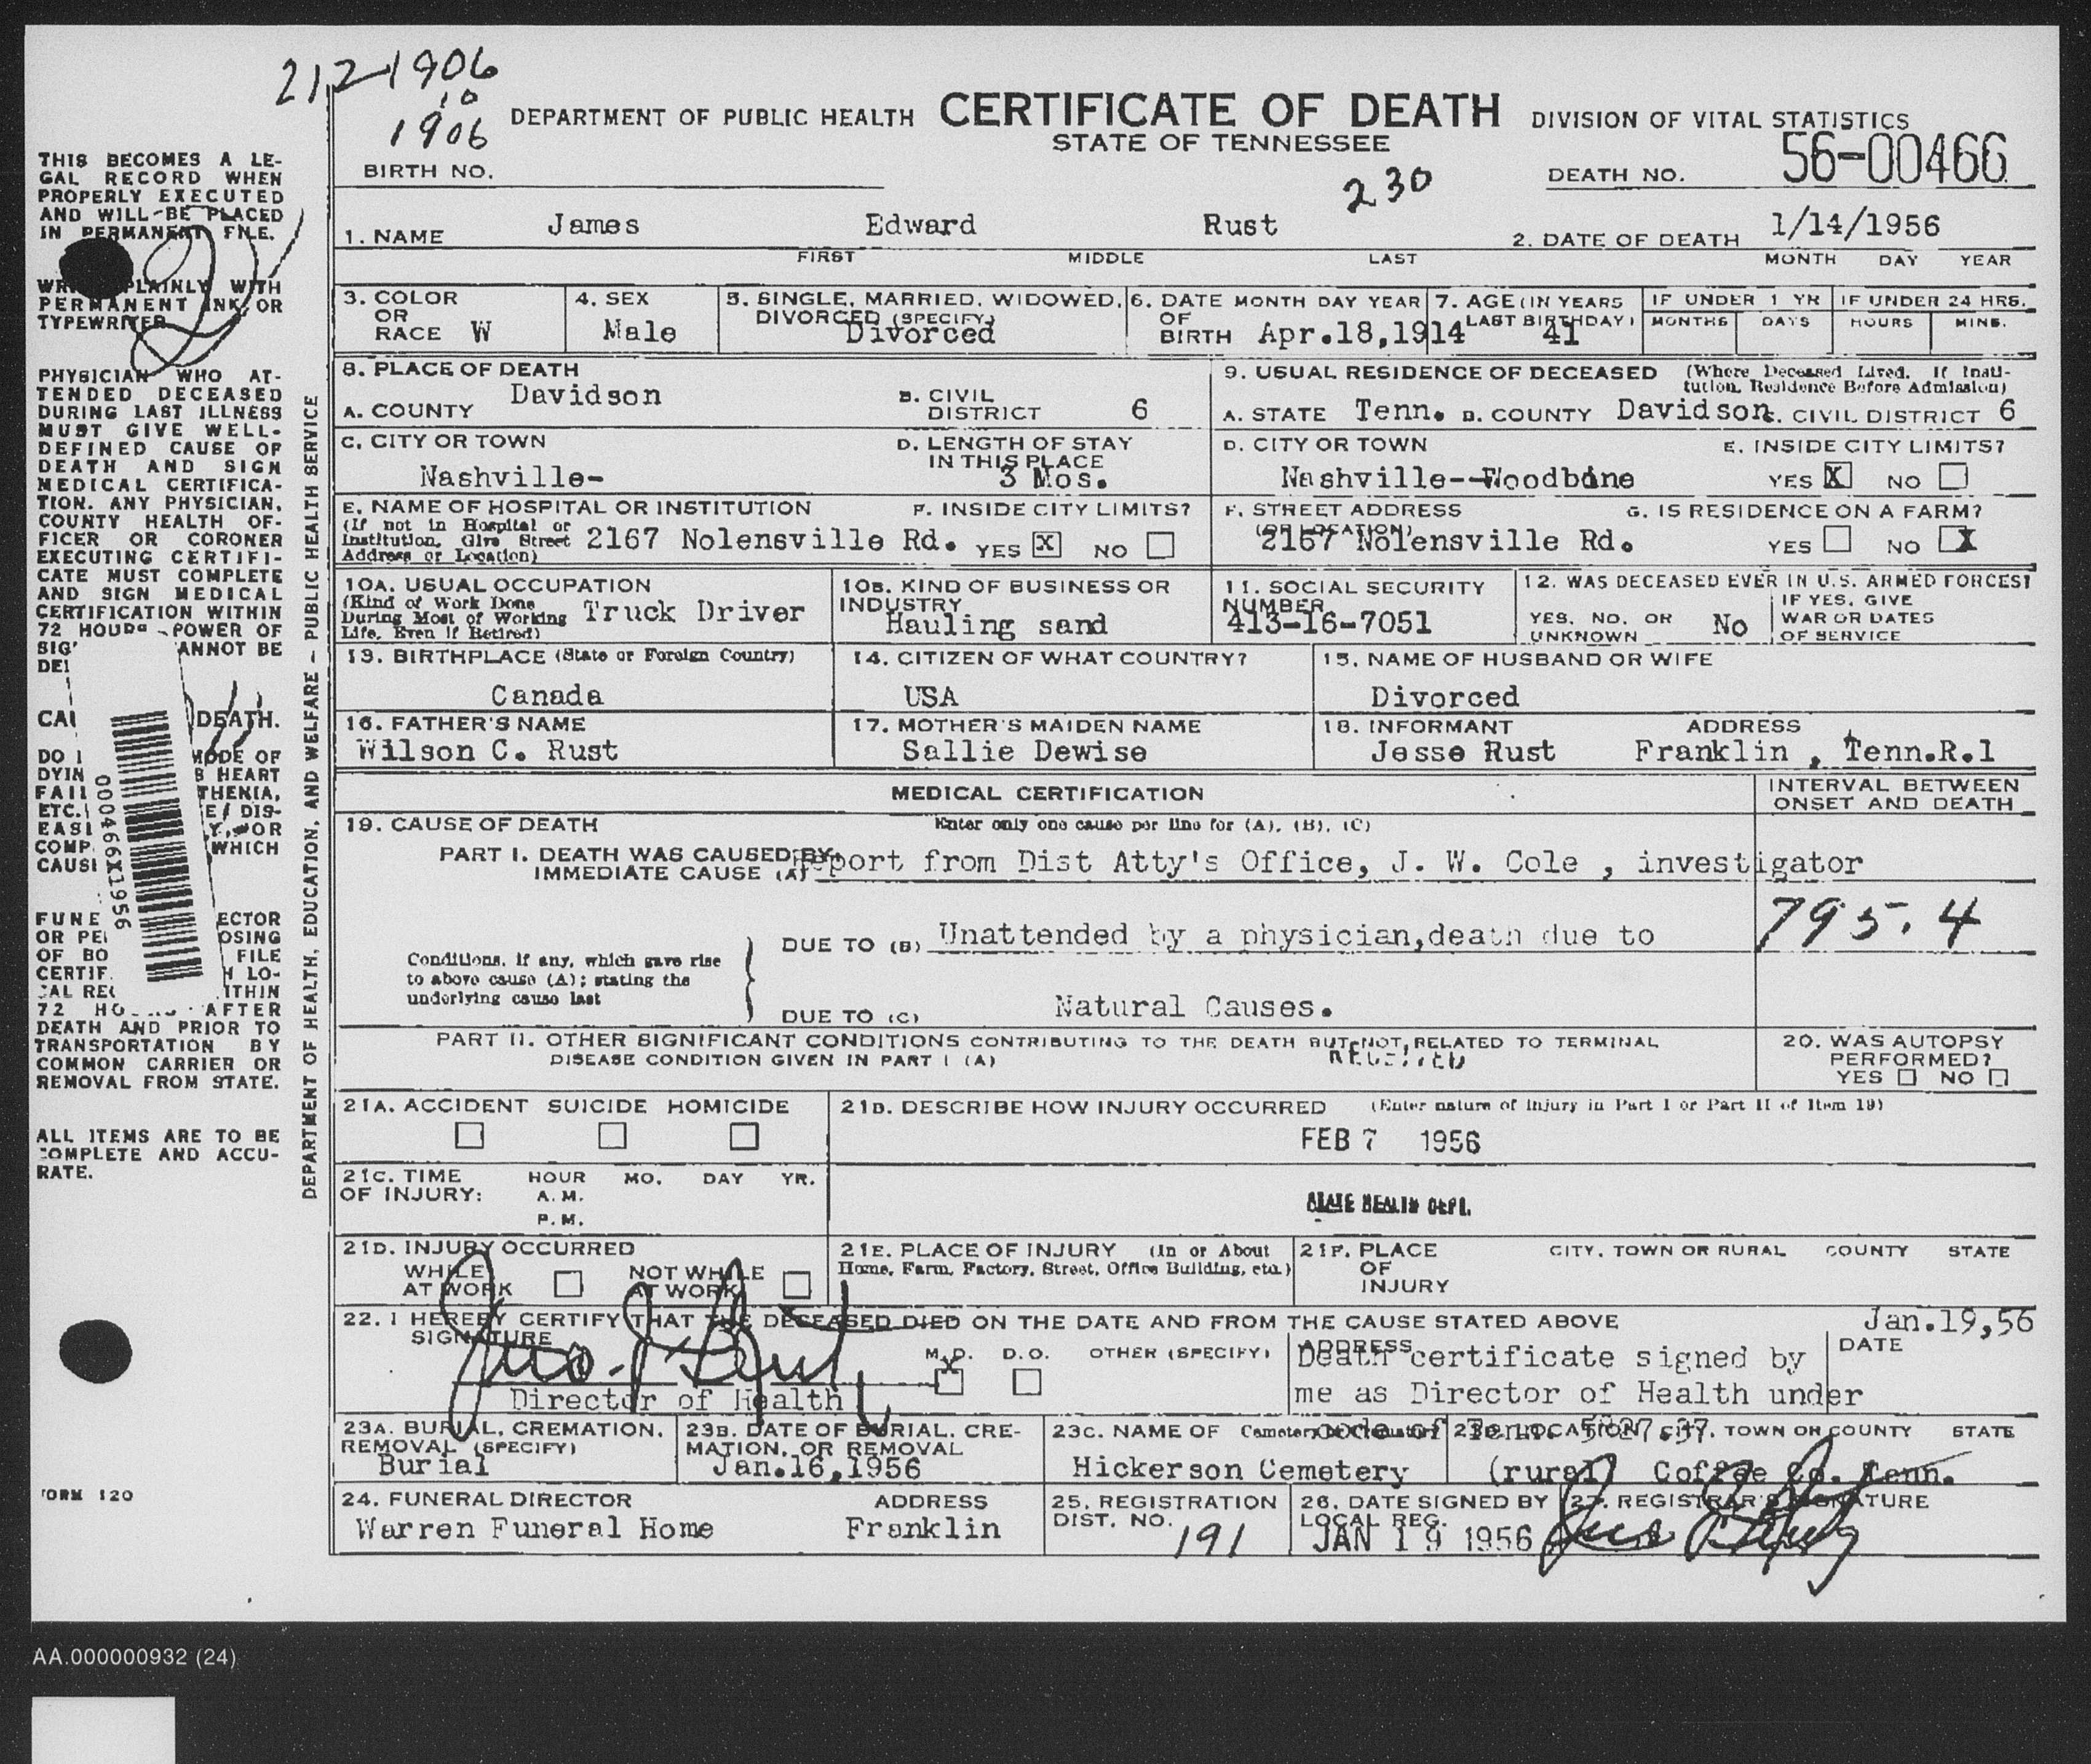 212-1906
10
1906
DEPARTMENT OF PUBLIC HEALTH CERTIFICATE OF DEATH DIVISION OF VITAL STATISTICS
STATE OF TENNESSEE
BIRTH NO. 230 DEATH NO. 56-00466
1. NAME James Edward Rust 2. DATE OF DEATH 1/14/1956
FIRST MIDDLE LAST MONTH DAY YEAR
3. COLOR OR RACE W
4. SEX Male
5. SINGLE, MARRIED, WIDOWED, DIVORCED (SPECIFY) Divorced
6. DATE OF BIRTH MONTH DAY YEAR Apr.18,1914
7. AGE (IN YEARS LAST BIRTHDAY) 41
IF UNDER 1 YR MONTHS DAYS
IF UNDER 24 HRS. HOURS MINS.
8. PLACE OF DEATH
A. COUNTY Davidson B. CIVIL DISTRICT 6
9. USUAL RESIDENCE OF DECEASED (Where Deceased Lived. If Institution, Residence Before Admission)
A. STATE Tenn. B. COUNTY Davidson C. CIVIL DISTRICT 6
C. CITY OR TOWN Nashville-
D. LENGTH OF STAY IN THIS PLACE 3 Mos.
D. CITY OR TOWN Nashville--Woodbine
E. INSIDE CITY LIMITS? YES X NO
E. NAME OF HOSPITAL OR INSTITUTION (If not in Hospital or Institution, Give Street Address or Location) 2167 Nolensville Rd.
F. INSIDE CITY LIMITS? YES X NO
F. STREET ADDRESS (OR LOCATION) 2167 Nolensville Rd.
G. IS RESIDENCE ON A FARM? YES NO X
10A. USUAL OCCUPATION (Kind of Work Done During Most of Working Life, Even If Retired) Truck Driver
10B. KIND OF BUSINESS OR INDUSTRY Hauling sand
11. SOCIAL SECURITY NUMBER 413-16-7051
12. WAS DECEASED EVER IN U.S. ARMED FORCES?
YES, NO, OR UNKNOWN No IF YES, GIVE WAR OR DATES OF SERVICE
13. BIRTHPLACE (State or Foreign Country) Canada
14. CITIZEN OF WHAT COUNTRY? USA
15. NAME OF HUSBAND OR WIFE Divorced
16. FATHER'S NAME Wilson C. Rust
17. MOTHER'S MAIDEN NAME Sallie Dewise
18. INFORMANT ADDRESS Jesse Rust Franklin, Tenn.R.1
MEDICAL CERTIFICATION
INTERVAL BETWEEN ONSET AND DEATH
19. CAUSE OF DEATH Enter only one cause per line for (A), (B), (C)
PART I. DEATH WAS CAUSED BY:
IMMEDIATE CAUSE (A) Report from Dist Atty's Office, J. W. Cole , investigator
795.4
Conditions, if any, which gave rise to above cause (A); stating the underlying cause last
DUE TO (B) Unattended by a physician,death due to
DUE TO (C) Natural Causes.
PART II. OTHER SIGNIFICANT CONDITIONS CONTRIBUTING TO THE DEATH BUT NOT RELATED TO TERMINAL
DISEASE CONDITION GIVEN IN PART I (A)
20. WAS AUTOPSY PERFORMED? YES NO
21A. ACCIDENT SUICIDE HOMICIDE
21B. DESCRIBE HOW INJURY OCCURRED (Enter nature of injury in Part I or Part II of Item 19)
FEB 7 1956
STATE HEALTH DEPT.
21C. TIME OF INJURY: HOUR MO. DAY YR.
A. M.
P. M.
21D. INJURY OCCURRED
WHILE AT WORK NOT WHILE AT WORK
21E. PLACE OF INJURY (In or About Home, Farm, Factory, Street, Office Building, etc.)
21F. PLACE OF INJURY CITY, TOWN OR RURAL COUNTY STATE
22. I HEREBY CERTIFY THAT THE DECEASED DIED ON THE DATE AND FROM THE CAUSE STATED ABOVE Jan.19,56
SIGNATURE M.D. X D.O. OTHER (SPECIFY) ADDRESS DATE
Director of Health
Death certificate signed by
me as Director of Health under
code of Tenn. 5827.37
23A. BURIAL, CREMATION, REMOVAL (SPECIFY) Burial
23B. DATE OF BURIAL, CREMATION, OR REMOVAL Jan.16,1956
23C. NAME OF Cemetery or Crematory Hickerson Cemetery
23D. LOCATION, CITY, TOWN OR COUNTY STATE (rural) Coffee Co. Tenn.
24. FUNERAL DIRECTOR ADDRESS Warren Funeral Home Franklin
25. REGISTRATION DIST. NO. 191
26. DATE SIGNED BY LOCAL REG. JAN 19 1956
27. REGISTRAR'S SIGNATURE
THIS BECOMES A LE-
GAL RECORD WHEN
PROPERLY EXECUTED
AND WILL BE PLACED
IN PERMANENT FILE.
PLAINLY WITH
PERMANENT INK OR
TYPEWRITER
PHYSICIAN WHO AT-
TENDED DECEASED
DURING LAST ILLNESS
MUST GIVE WELL-
DEFINED CAUSE OF
DEATH AND SIGN
MEDICAL CERTIFICA-
TION. ANY PHYSICIAN,
COUNTY HEALTH OF-
FICER OR CORONER
EXECUTING CERTIFI-
CATE MUST COMPLETE
AND SIGN MEDICAL
CERTIFICATION WITHIN
72 HOURS POWER OF
ANNOT BE
DEATH.
DO MODE OF
HEART
THENIA,
ETC. DIS-
OR
WHICH
ECTOR
OSING
FILE
ITHIN
72 AFTER
DEATH AND PRIOR TO
TRANSPORTATION BY
COMMON CARRIER OR
REMOVAL FROM STATE.
ALL ITEMS ARE TO BE
COMPLETE AND ACCU-
RATE.
000466X1956
DEPARTMENT OF HEALTH, EDUCATION, AND WELFARE – PUBLIC HEALTH SERVICE
FORM 120
AA.000000932 (24)